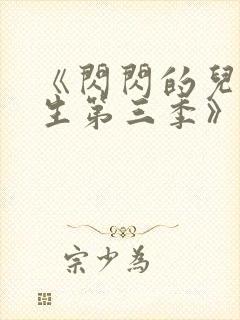 《閃閃的兒
生第三季》
宗少為